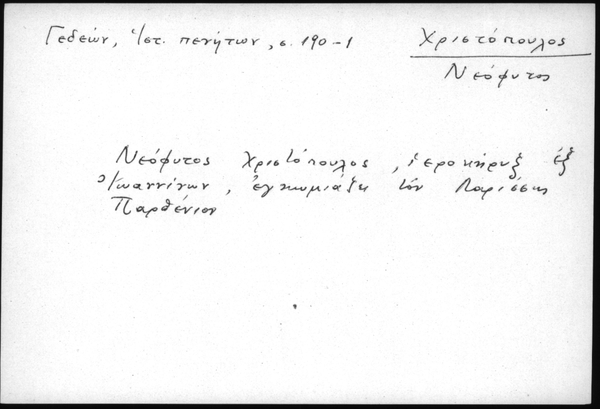 Γεδεών, Ἱστ. πενήτων, σ. 190-1
Χριστόπουλος
Νεόφυτος
Νεόφυτος Χριστόπουλος, ἱεροκήρυξ ἐξ
Ἰωαννίνων, ἐγκωμιάζει τὸν Λαρίσσης
Παρθένιον